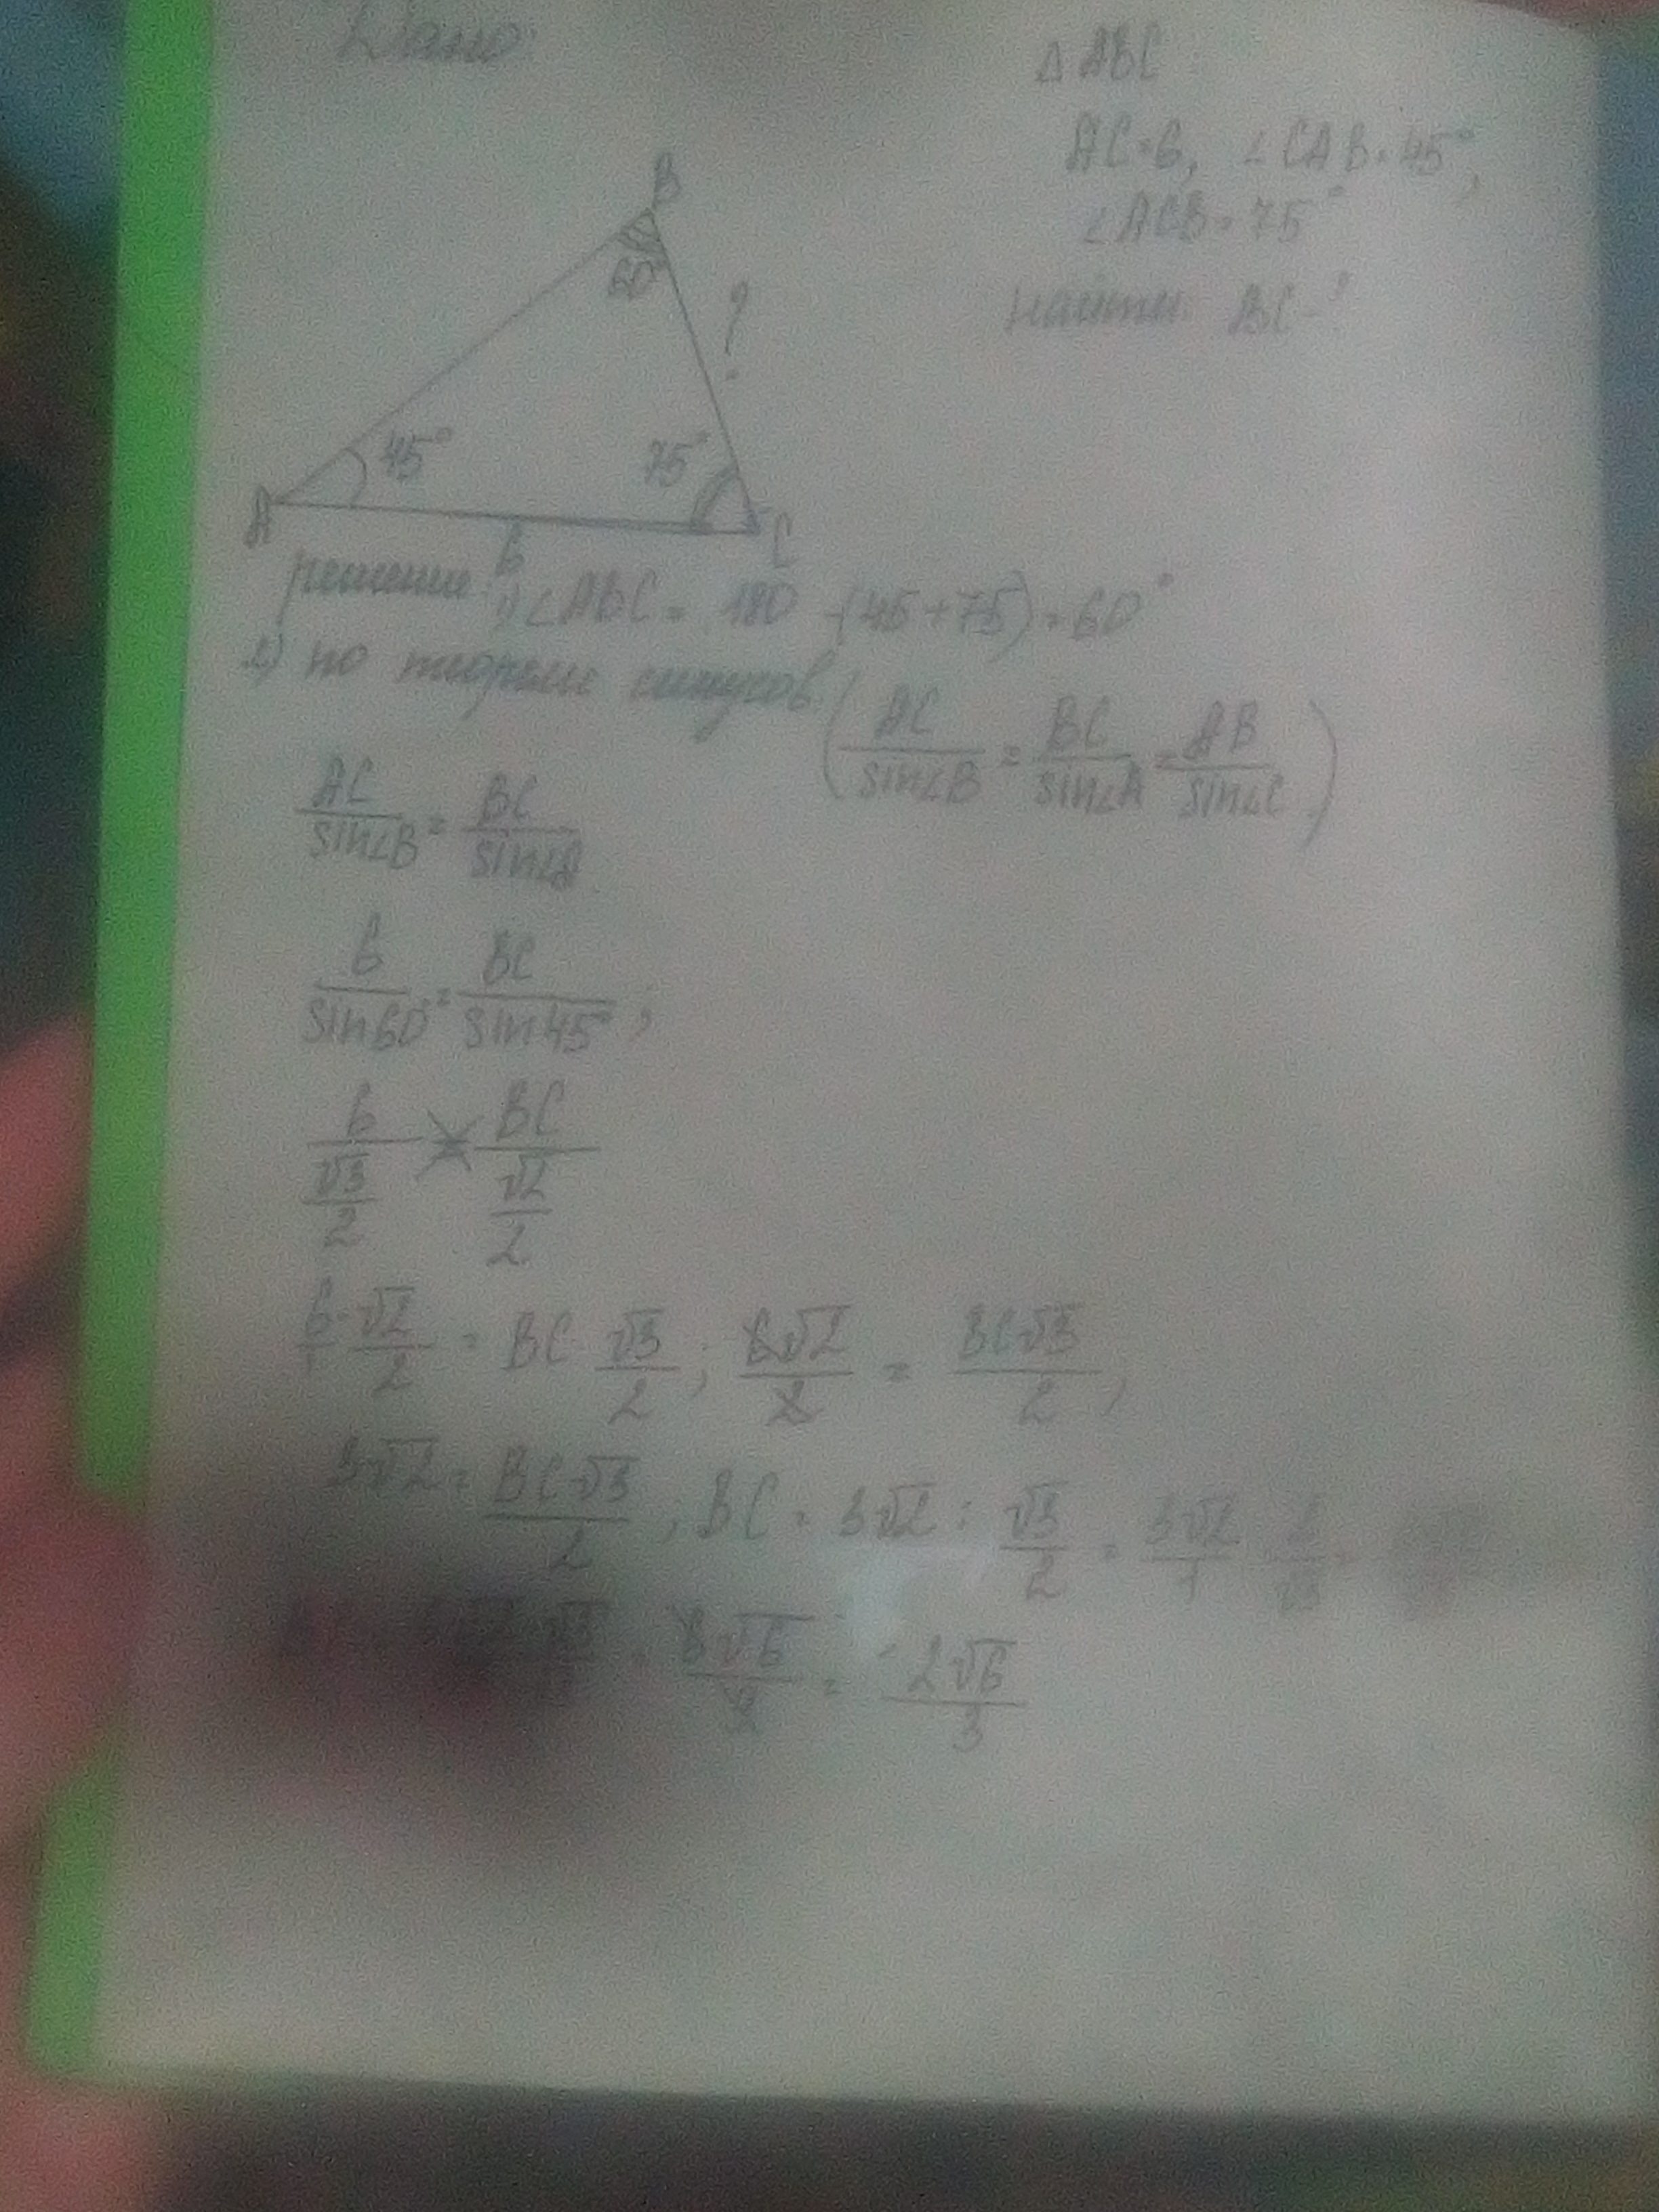 Дано:
△ ABC
AC=6, ∠CAB=45°,
∠ACB=75°
найти: BC-?
B
60°
?
45°
75°
A
6
C
решение: 1) ∠ABC = 180 -(45+75)=60°
2) по теореме синусов (AC/sin∠B = BC/sin∠A = AB/sin∠C)
AC/sin∠B = BC/sin∠A
6/sin60° = BC/sin45° ;
6/(√3/2) = BC/(√2/2)
6/1 · √2/2 = BC √3/2 ; 6√2/2 = BC√3/2 ;
3√2 = BC√3/2 ; BC = 3√2 : √3/2 = 3√2/1 · 2/√3 =
√3 = 6√6 = 2√6/3